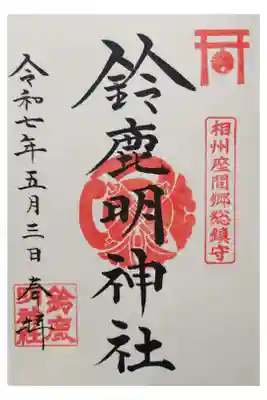 相州座間郷総鎮守
鈴鹿明神社
令和七年五月三日奉拝
鈴鹿
明神社